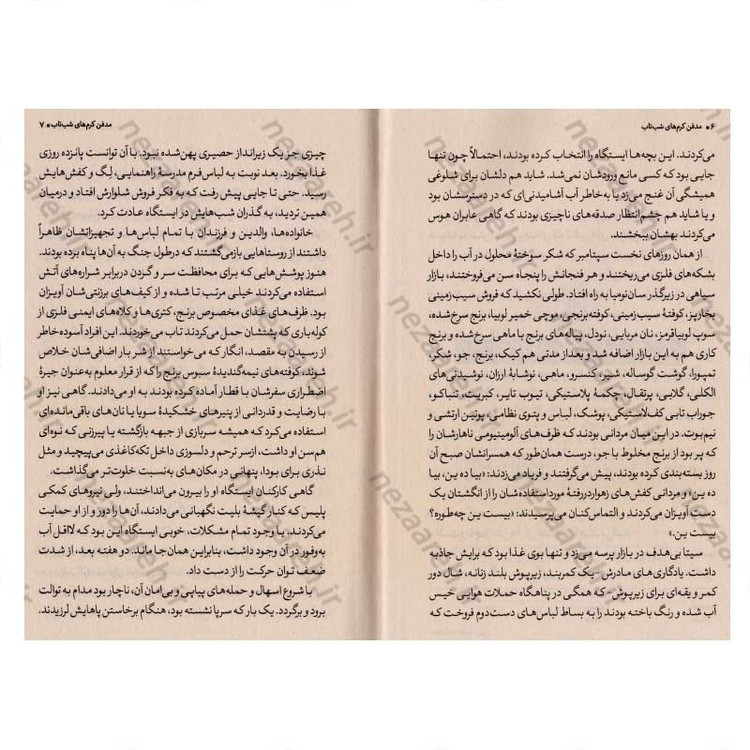 ۶ ■ مدفن کرم‌های شب‌تاب
می‌کردند. این بچه‌ها ایستگاه را انتخاب کرده بودند، احتمالاً چون تنها
جایی بود که کسی مانع ورودشان نمی‌شد. شاید هم دلشان برای شلوغی
همیشگی آن غنج می‌زد یا به خاطر آب آشامیدنی‌ای که در دسترسشان بود
و یا شاید هم چشم‌انتظار صدقه‌های ناچیزی بودند که گاهی عابران هوس
می‌کردند بهشان ببخشند.
از همان روزهای نخست سپتامبر که شکر سوختهٔ محلول در آب را داخل
بشکه‌های فلزی می‌ریختند و هر فنجانش را پنجاه سن می‌فروختند، بازار
سیاهی در زیرگذر سان‌نومیا به راه افتاد. طولی نکشید که فروش سیب‌زمینی
بخارپز، کوفتهٔ سیب‌زمینی، کوفته‌برنجی، موچی خمیر لوبیا، برنج سرخ‌شده،
سوپ لوبیاقرمز، نان مربایی، نودل، پیاله‌های برنج با ماهی سرخ‌شده و برنج
کاری هم به این بازار اضافه شد و بعد از مدتی هم کیک، برنج، جو، شکر،
تمپورا، گوشت گوساله، شیر، کنسرو، ماهی، نوشابهٔ ارزان، نوشیدنی‌های
الکلی، گلابی، پرتقال، چکمهٔ پلاستیکی، تیوب تایر، کبریت، تنباکو،
جوراب تابی کف‌لاستیکی، پوشک، لباس و پتوی نظامی، پوتین ارتشی و
نیم‌بوت. در این میان مردانی بودند که ظرف‌های آلومینیومی ناهارشان را
که پر بود از برنج مخلوط با جو، درست همان‌طور که همسرانشان صبح آن
روز بسته‌بندی کرده بودند، پیش می‌گرفتند و فریاد می‌زدند: «بیا ده ین، بیا
ده ین» و مردانی کفش‌های زهواردررفتهٔ مورد استفاده‌شان را از انگشتان یک
دست آویزان می‌کردند و التماس‌کنان می‌پرسیدند: «بیست ین چه‌طوره؟
بیست ین.»
سیتا بی‌هدف در بازار پرسه می‌زد و تنها بوی غذا بود که برایش جاذبه
داشت. یادگاری‌های مادرش -یک کمربند، زیرپوش بلند زنانه، شال دور
کمر و یقه‌ای برای زیرپوش- که همگی در پناهگاه حملات هوایی خیس
آب شده و رنگ باخته بودند را به بساط لباس‌های دست‌دوم فروخت که
مدفن کرم‌های شب‌تاب ■ ۷
چیزی جز یک زیرانداز حصیری پهن‌شده نبود. با آن توانست پانزده روزی
غذا بخورد. بعد نوبت به لباس‌فرم مدرسهٔ راهنمایی، لِگ و کفش‌هایش
رسید. حتی تا جایی پیش رفت که به فکر فروش شلوارش افتاد و درمیان
همین تردید، به گذران شب‌هایش در ایستگاه عادت کرد.
خانواده‌ها، والدین و فرزندان با تمام لباس‌ها و تجهیزاتشان ظاهراً
داشتند از روستاهایی بازمی‌گشتند که درطول جنگ به آن‌ها پناه برده بودند.
هنوز پوشش‌هایی که برای محافظت سر و گردن دربرابر شراره‌های آتش
استفاده می‌کردند خیلی مرتب تا شده و از کیف‌های برزنتی‌شان آویزان
بود. ظرف‌های غذای مخصوص برنج، کتری‌ها و کلاه‌های ایمنی فلزی از
کوله‌باری که پشتشان حمل می‌کردند تاب می‌خوردند. این افراد آسوده‌خاطر
از رسیدن به مقصد، انگار که می‌خواستند از شر بار اضافی‌شان خلاص
شوند، کوفته‌های نیمه‌گندیدهٔ سبوس برنج را که از قرار معلوم به‌عنوان جیرهٔ
اضطراری سفرشان با قطار آماده کرده بودند به او می‌دادند. گاهی نیز او
با رضایت و قدردانی از پنیرهای خشکیدهٔ سویا یا نان‌های باقی‌مانده‌ای
استفاده می‌کرد که همیشه سربازی از جبهه بازگشته یا پیرزنی که نوه‌ای
هم‌سن او داشت، ازسر ترحم و دلسوزی داخل تکه‌کاغذی می‌پیچید و مثل
نذری برای بودا، پنهانی در مکان‌های به‌نسبت خلوت‌تر می‌گذاشت.
گاهی کارکنان ایستگاه او را بیرون می‌انداختند، ولی نیروهای کمکی
پلیس که کنار گیشهٔ بلیت نگهبانی می‌دادند، آن‌ها را دور و از او حمایت
می‌کردند. با وجود تمام مشکلات، خوبی ایستگاه این بود که لااقل آب
به‌وفور در آن وجود داشت، بنابراین همان‌جا ماند. دو هفته بعد، از شدت
ضعف توان حرکت را از دست داد.
با شروع اسهال و حمله‌های پیاپی و بی‌امان آن، ناچار بود مدام به توالت
برود و برگردد. یک بار که سرپا نشسته بود، هنگام برخاستن پاهایش لرزیدند.
nezaareh.ir